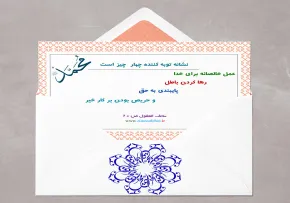 نشانه توبه کننده چهار چیز است
عمل خالصانه برای خدا
رها کردن باطل
پایبندی به حق
و حریص بودن بر کار خیر